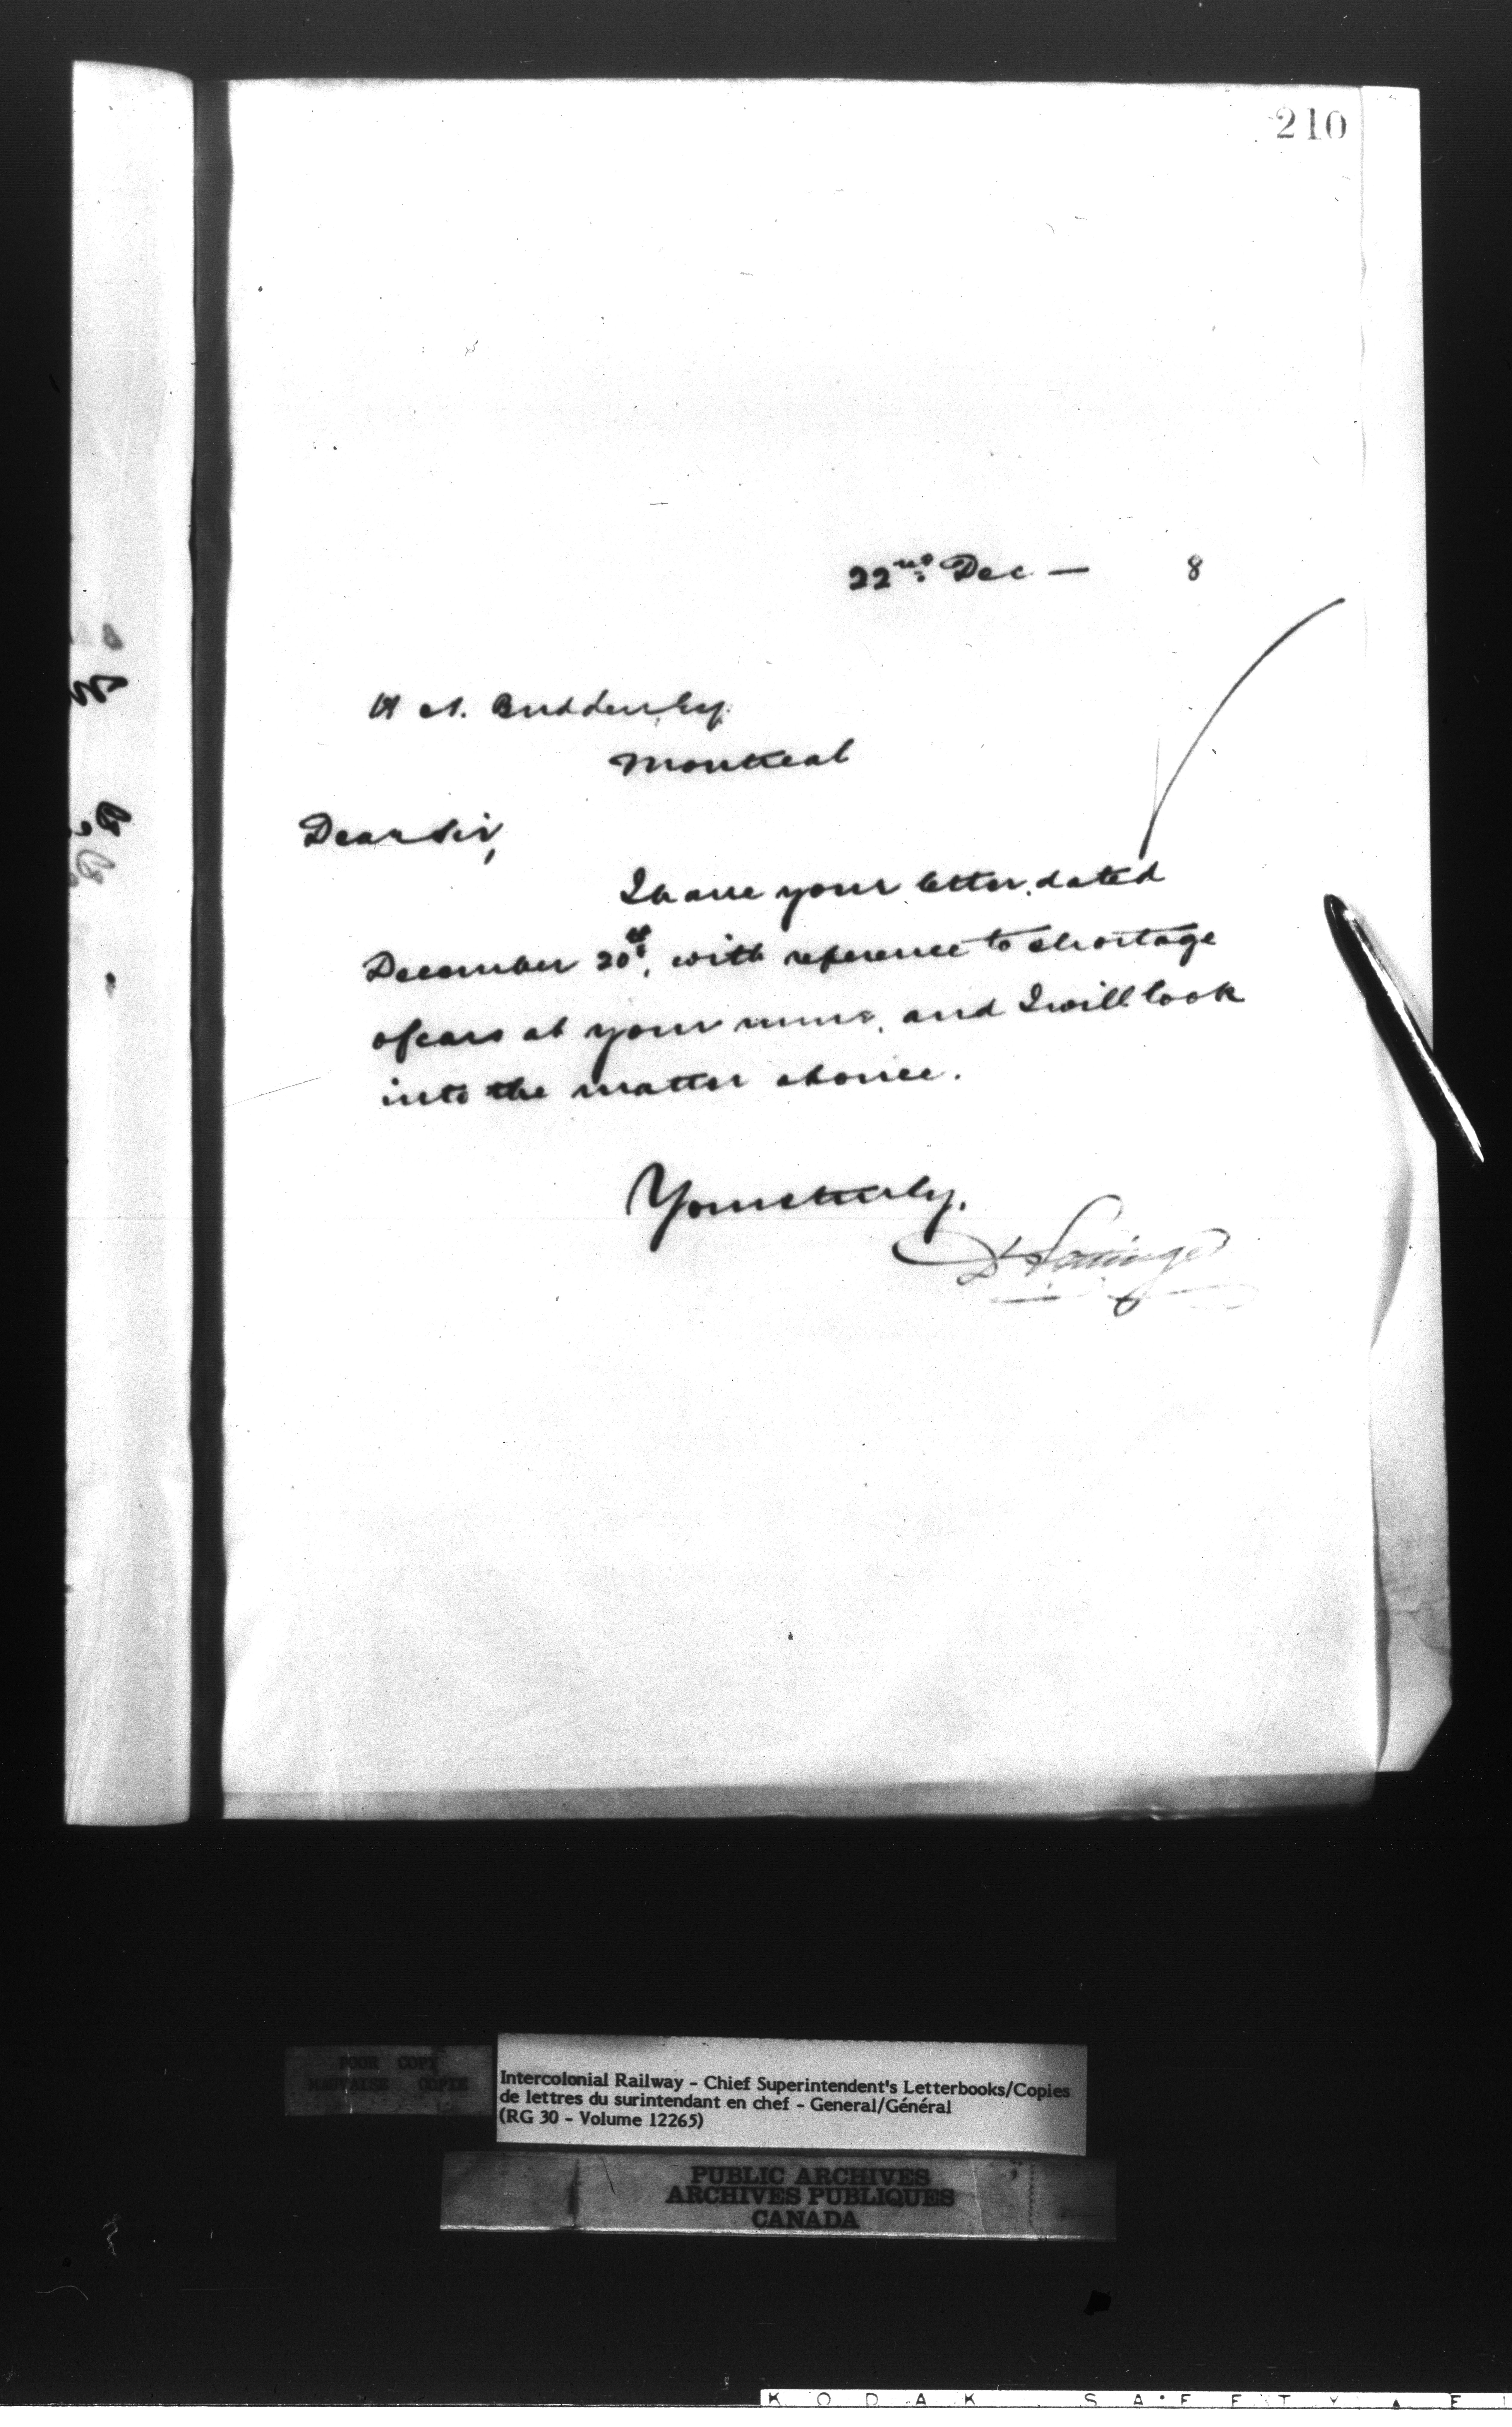 210
22nd Dec — 8
H A. Budden, Esq.
Montreal
Dear Sir,
I have your letter, dated
December 20th, with reference to shortage
of cars at your mine, and I will look
into the matter at once.
Yours truly,
D Pottinger
POOR COPY
MAUVAISE COPIE
Intercolonial Railway - Chief Superintendent's Letterbooks/Copies
de lettres du surintendant en chef - General/Général
(RG 30 - Volume 12265)
PUBLIC ARCHIVES
ARCHIVES PUBLIQUES
CANADA
KODAK SAFETY